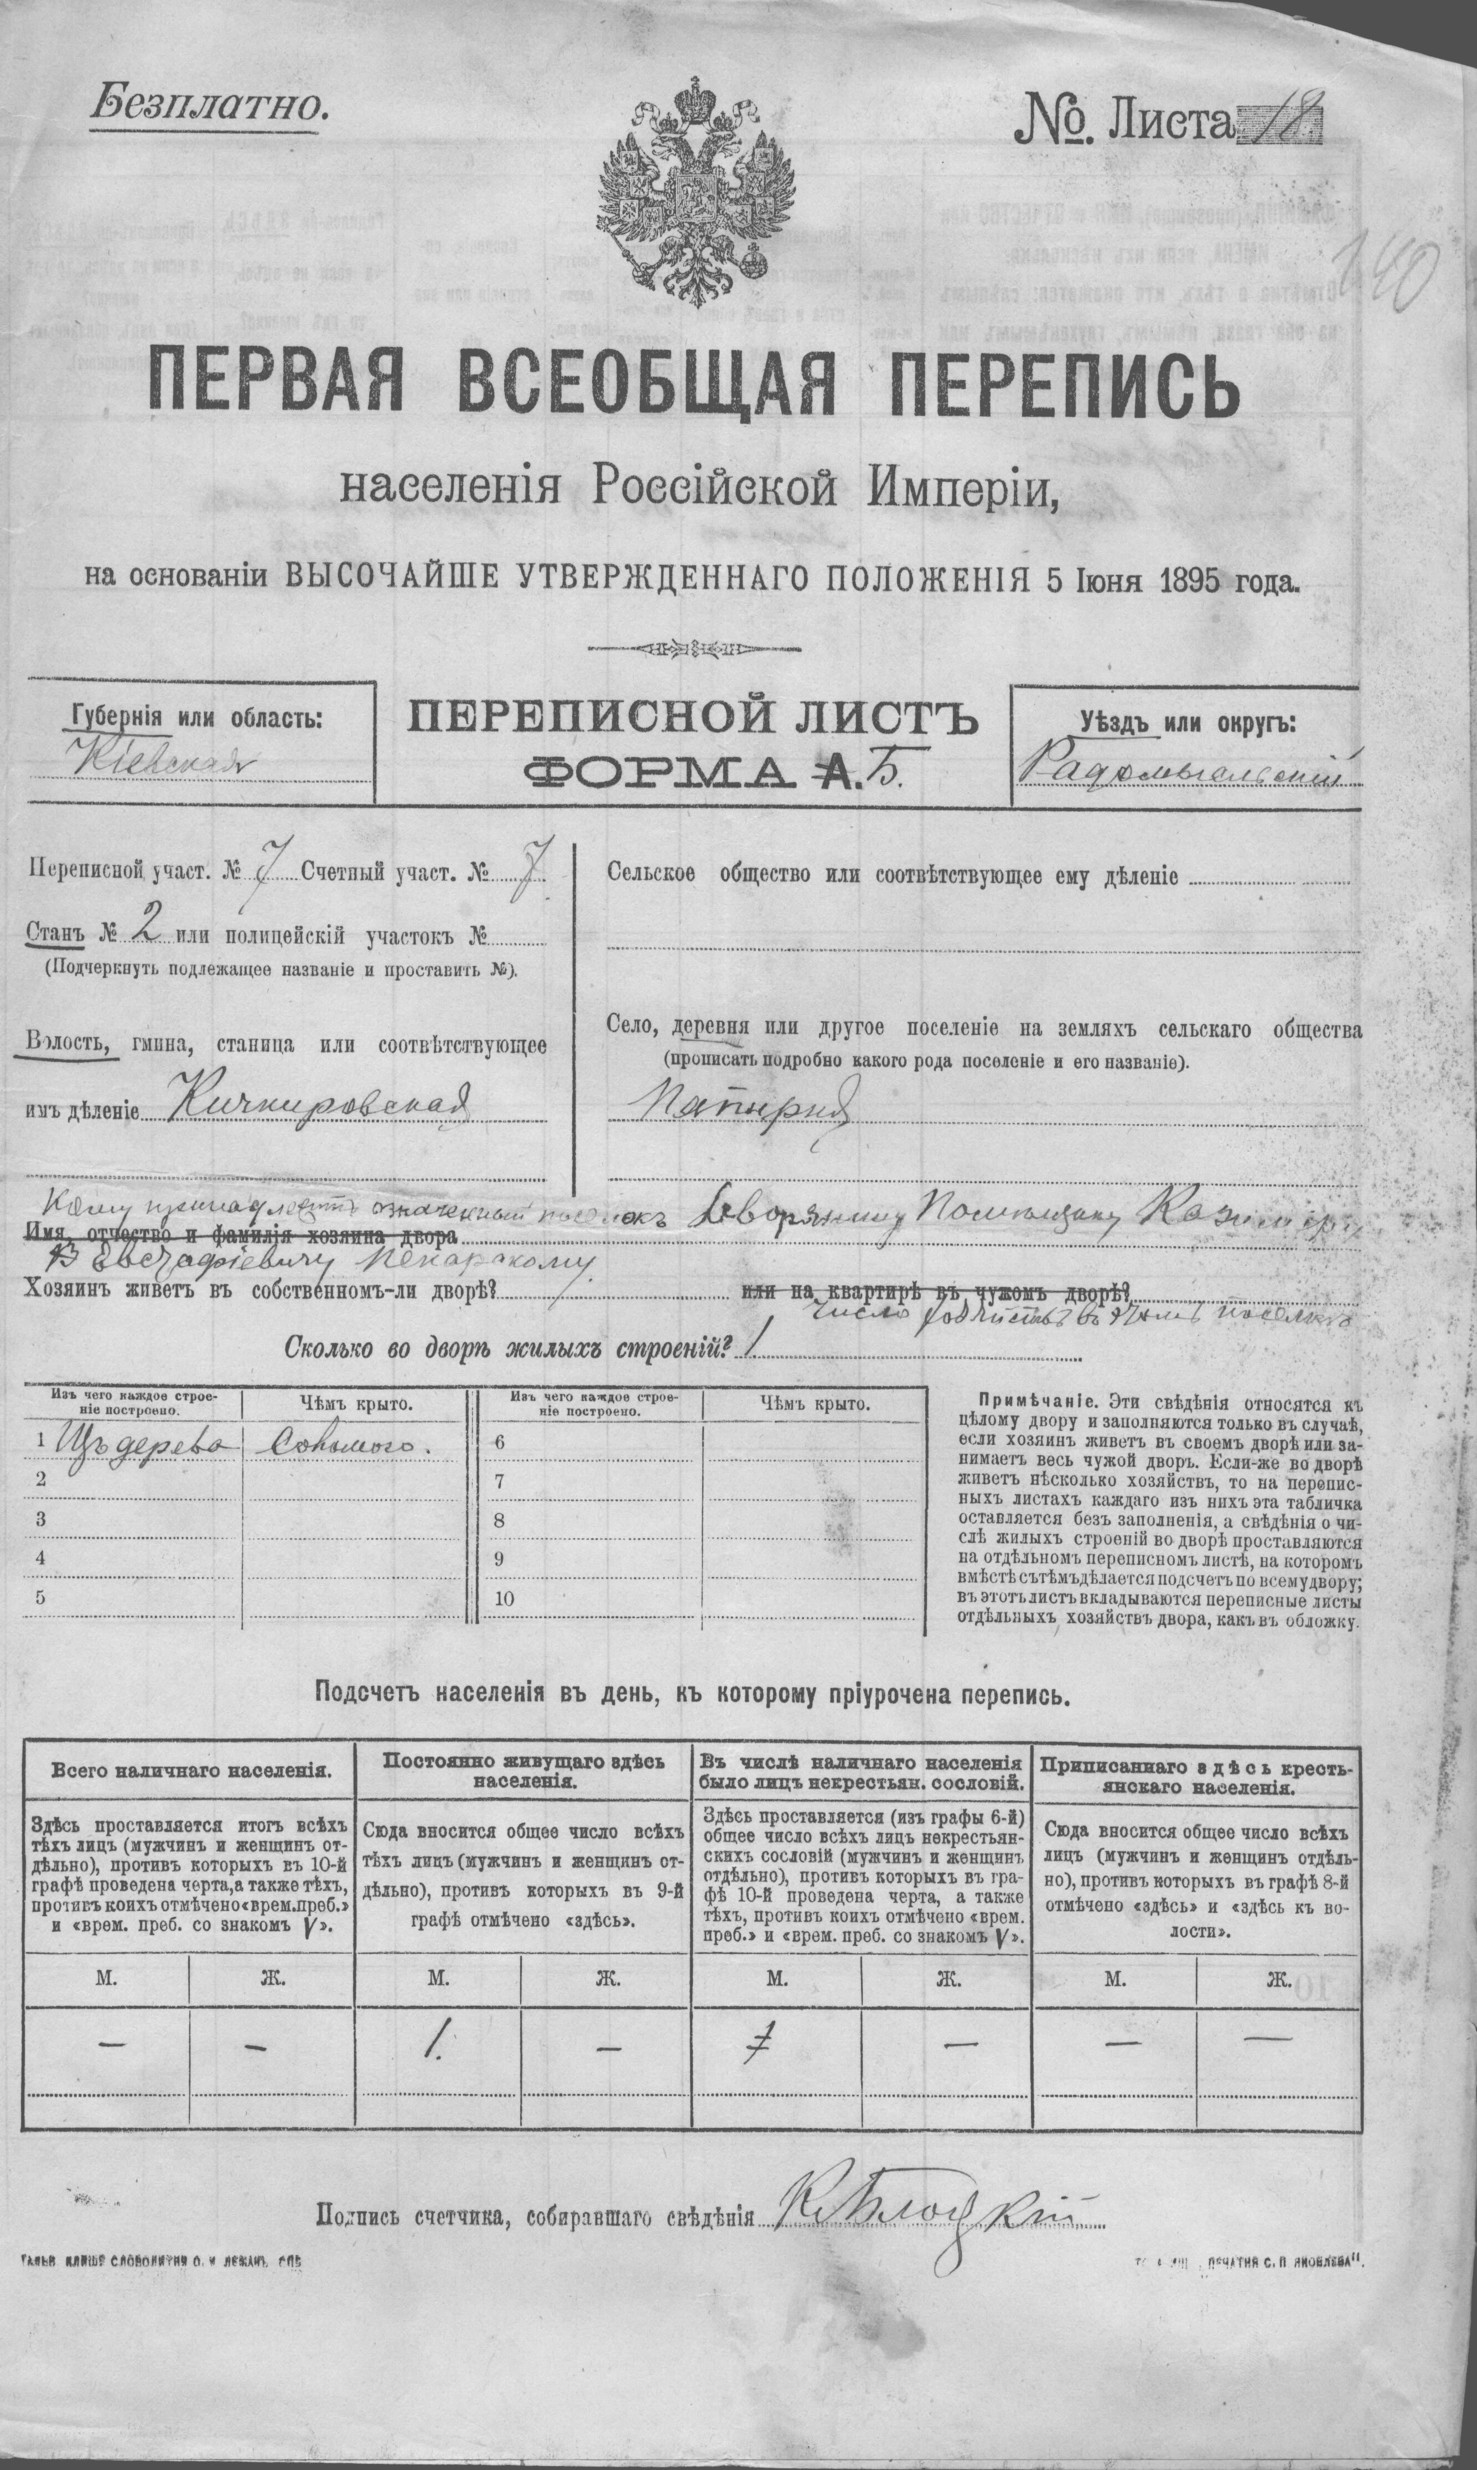 Безплатно.
№. Листа 18.
140
ПЕРВАЯ ВСЕОБЩАЯ ПЕРЕПИСЬ
населенія Россійской Имперіи,
на основаніи ВЫСОЧАЙШЕ УТВЕРЖДЕННАГО ПОЛОЖЕНІЯ 5 Іюня 1895 года.
Губернія или область:
Кіевская
ПЕРЕПИСНОЙ ЛИСТЪ
ФОРМА А. Б.
Уѣздъ или округъ:
Радомысльскій
Переписной участ. № 7 Счетный участ. № 7
Станъ № 2 или полицейскій участокъ №
(Подчеркнуть подлежащее названіе и проставить №).
Волость, гмина, станица или соотвѣтствующее
имъ дѣленіе Кичкировская
Сельское общество или соотвѣтствующее ему дѣленіе
Село, деревня или другое поселеніе на земляхъ сельскаго общества
(прописать подробно какого рода поселеніе и его названіе).
Папирня
Кому принадлежитъ означенный поселокъ Дворянину Помѣщику Казимиру
Имя, отчество и фамилія хозяина двора
Евстафіевичу Пекарскому
Хозяинъ живетъ въ собственномъ-ли дворѣ? или на квартирѣ въ чужомъ дворѣ?
Число хозяйствъ въ этомъ поселкѣ
Сколько во дворѣ жилыхъ строеній? 1
Изъ чего каждое строеніе построено. Чѣмъ крыто. Изъ чего каждое строеніе построено. Чѣмъ крыто.
1 Изъ дерева Соломою. 6
2 7
3 8
4 9
5 10
Примѣчаніе. Эти свѣдѣнія относятся къ
цѣлому двору и заполняются только въ случаѣ,
если хозяинъ живетъ въ своемъ дворѣ или за-
нимаетъ весь чужой дворъ. Если-же во дворѣ
живетъ нѣсколько хозяйствъ, то на перепис-
ныхъ листахъ каждаго изъ нихъ эта табличка
оставляется безъ заполненія, а свѣдѣнія о чи-
слѣ жилыхъ строеній во дворѣ проставляются
на отдѣльномъ переписномъ листѣ, на которомъ
вмѣстѣ съ тѣмъ дѣлается подсчетъ по всему двору;
въ этотъ листъ вкладываются переписные листы
отдѣльныхъ хозяйствъ двора, какъ въ обложку.
Подсчетъ населенія въ день, къ которому пріурочена перепись.
Всего наличнаго населенія.
Здѣсь проставляется итогъ всѣхъ
тѣхъ лицъ (мужчинъ и женщинъ от-
дѣльно), противъ которыхъ въ 10-й
графѣ проведена черта, а также тѣхъ,
противъ коихъ отмѣчено «врем. преб.»
и «врем. преб. со знакомъ V».
Постоянно живущаго здѣсь
населенія.
Сюда вносится общее число всѣхъ
тѣхъ лицъ (мужчинъ и женщинъ от-
дѣльно), противъ которыхъ въ 9-й
графѣ отмѣчено «здѣсь».
Въ числѣ наличнаго населенія
было лицъ некрестьян. сословій.
Здѣсь проставляется (изъ графы 6-й)
общее число всѣхъ лицъ некрестьян-
скихъ сословій (мужчинъ и женщинъ
отдѣльно), противъ которыхъ въ гра-
фѣ 10-й проведена черта, а также
тѣхъ, противъ коихъ отмѣчено «врем.
преб.» и «врем. преб. со знакомъ V».
Приписаннаго здѣсь кресть-
янскаго населенія.
Сюда вносится общее число всѣхъ
лицъ (мужчинъ и женщинъ отдѣль-
но), противъ которыхъ въ графѣ 8-й
отмѣчено «здѣсь» и «здѣсь къ во-
лости».
М. Ж. М. Ж. М. Ж. М. Ж.
— — 1. — 1 — — —
Подпись счетчика, собиравшаго свѣдѣнія